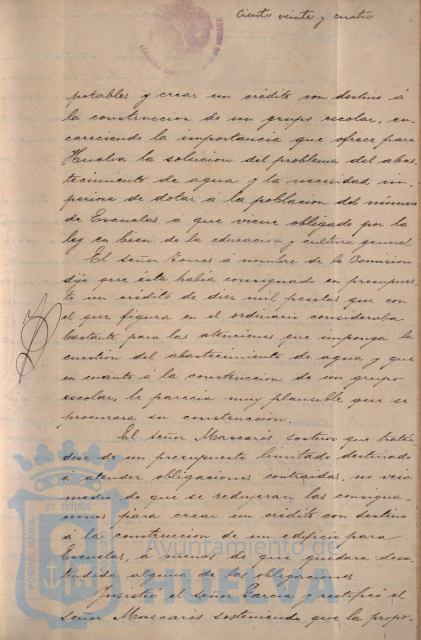 Ciento veinte y cuatro
potables y crear un crédito con destino á
la construccion de un grupo escolar, en-
careciendo la importancia que ofrece para
Huelva la solucion del problema del abas-
tecimiento de agua y la necesidad im-
periosa de dotar á la poblacion del número
de Escuelas á que viene obligado por la
ley en bien de la educacion y cultura general.
El señor Torres á nombre de la Comision
dijo que ésta habia consignado en presupues-
to un crédito de diez mil pesetas que con
el que figura en el ordinario consideraba
bastante para las atenciones que imponga la
cuestion del abastecimiento de agua y que
en cuanto á la construccion de un grupo
escolar, le parecia muy plausible que se
procurara su construccion.
El señor Mascarós sostuvo que tratán-
dose de un presupuesto limitado destinado
á atender obligaciones contraidas, no veia
medio de que se redujeran las consigna-
ciones para crear un crédito con destino
á la construccion de un edificio para
Escuelas, á menos de que quedara desa-
tendida alguna de las obligaciones.
Insistió el señor Garcia y rectificó el
señor Mascarós sosteniendo que la propo-
Ayuntamiento de
HUELVA
PORTUS MARIS
ET TERRÆ